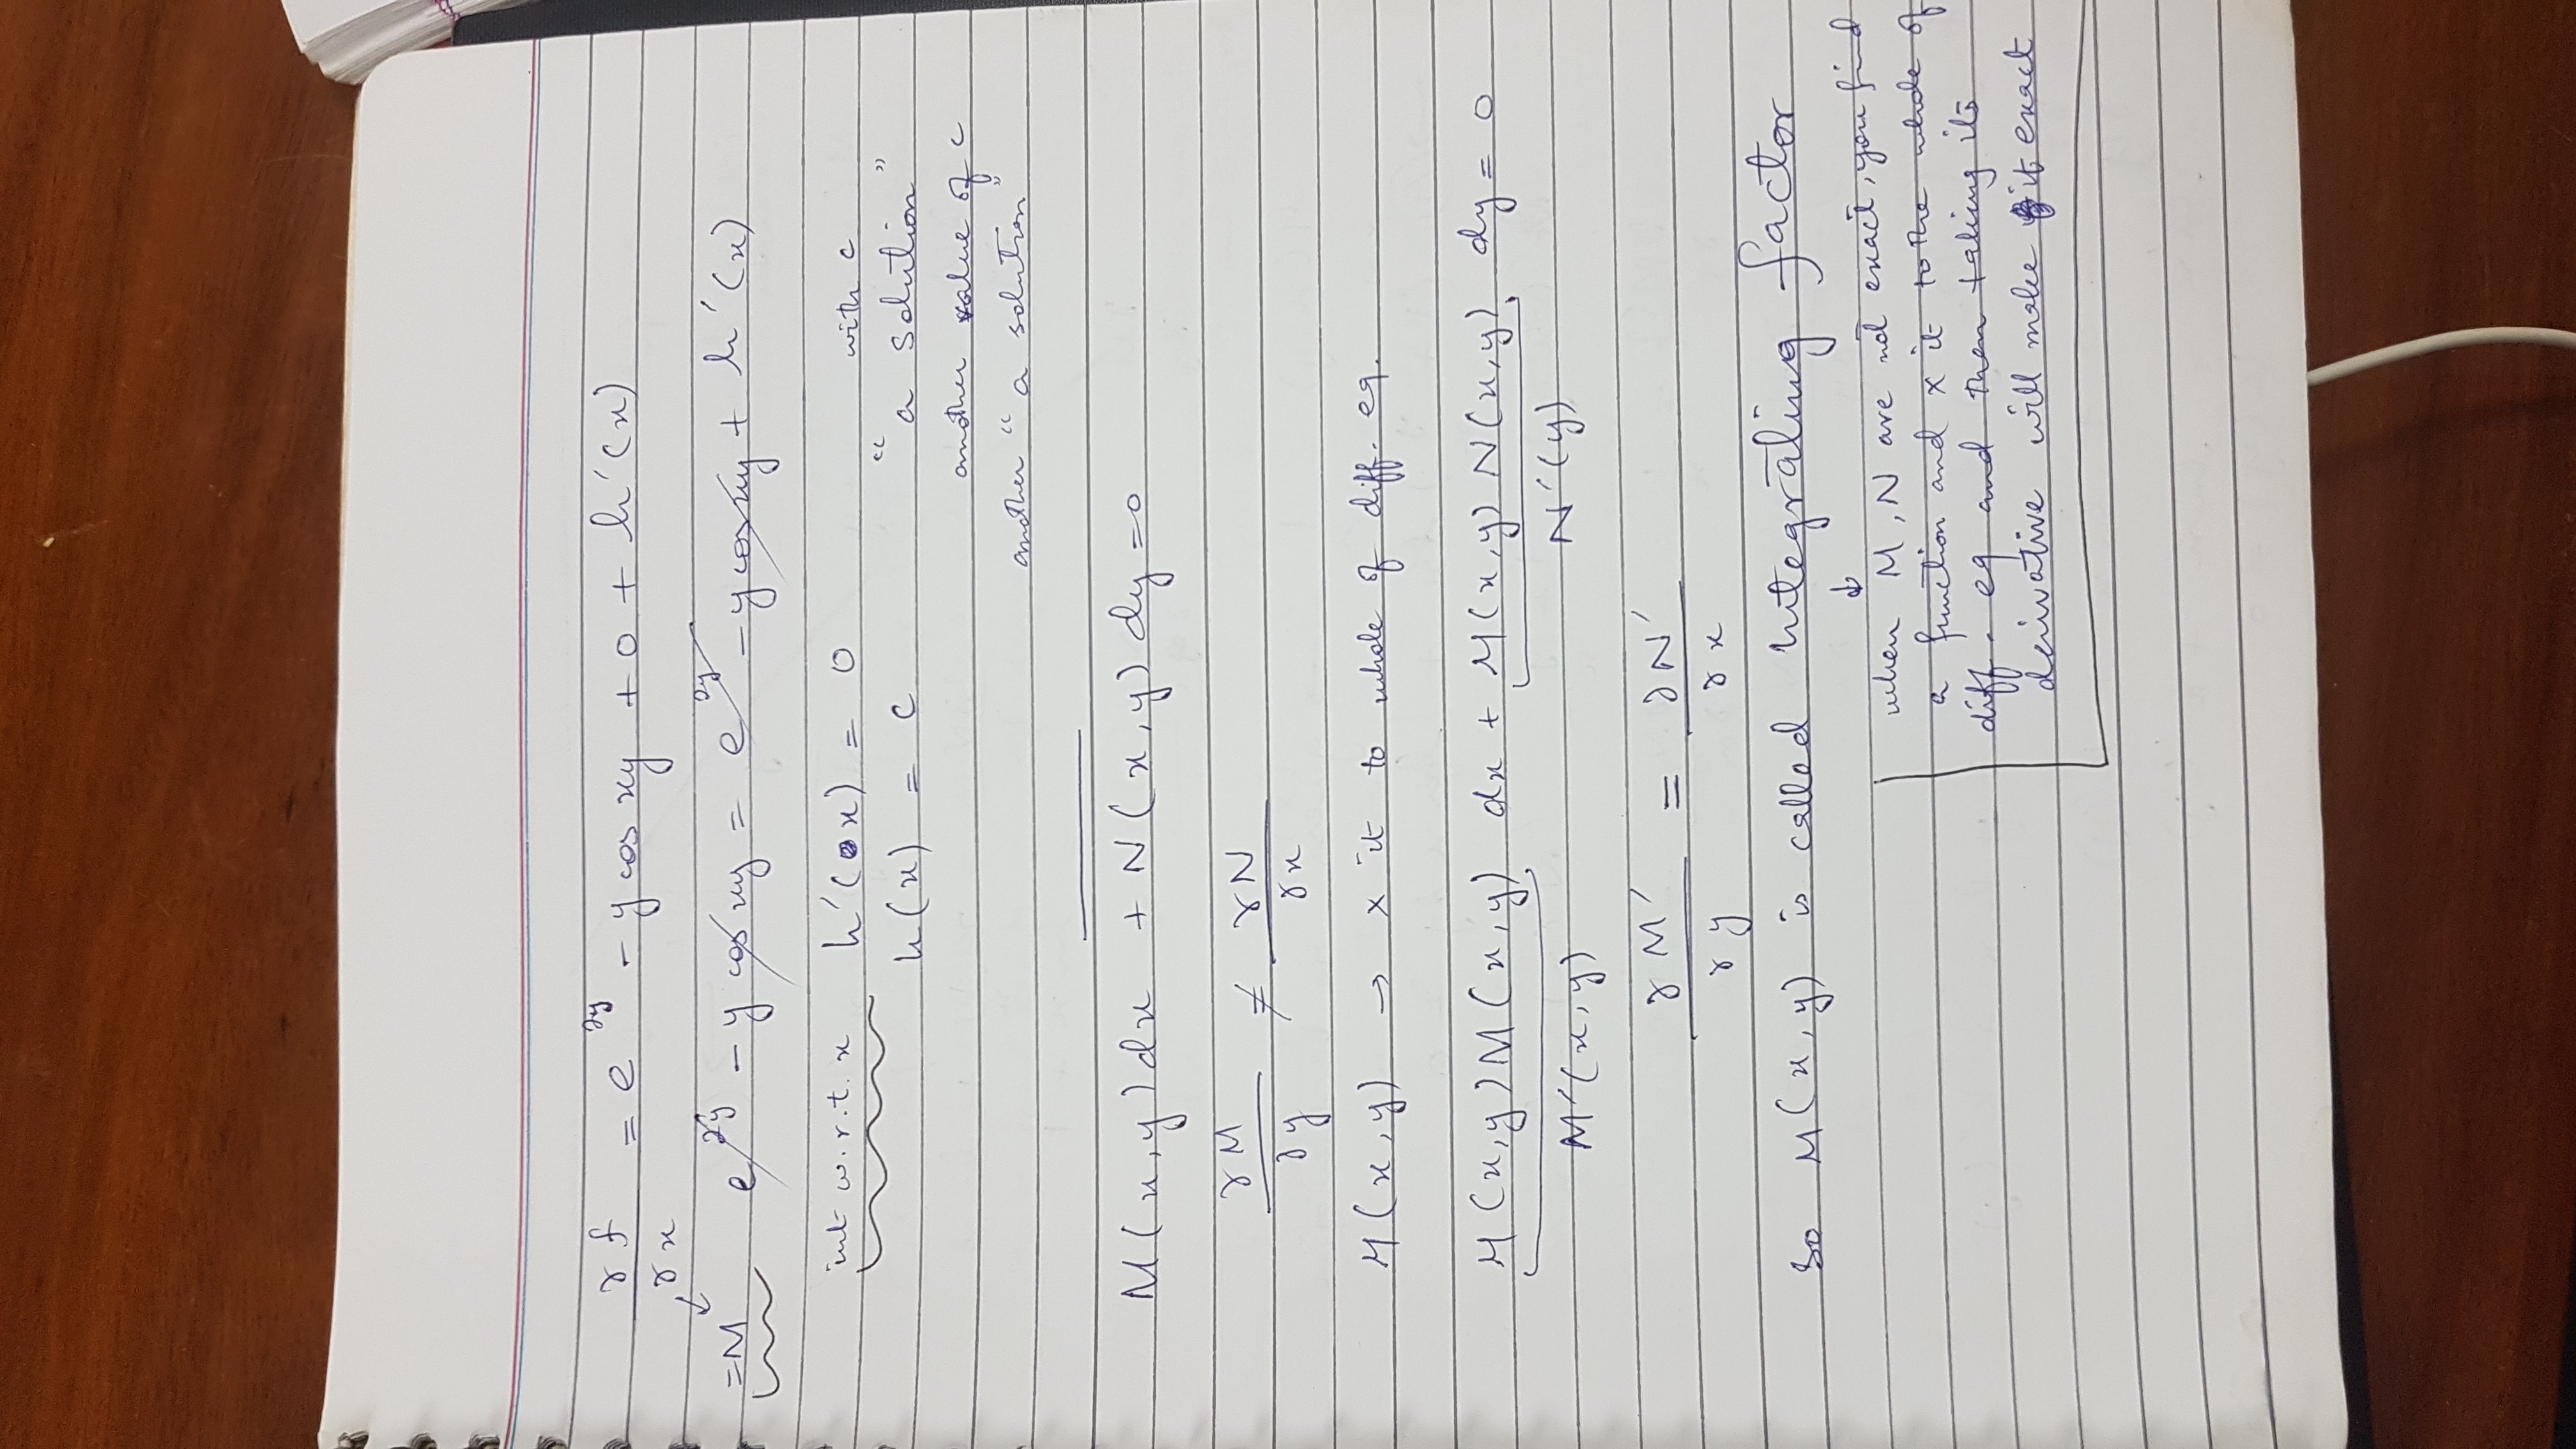 ∂f/∂x = e^2y - y cos xy + 0 + h'(x)
=M e^2y - y cos xy = e^2y - y cos xy + h'(x)
int w.r.t. x h'(x) = 0 with c
h(x) = c "a solution"
another value of c
another "a solution"
M(x,y)dx + N(x,y)dy=0
∂M/∂y ≠ ∂N/∂x
μ(x,y) → x it to whole of diff. eq.
μ(x,y)M(x,y) dx + μ(x,y) N(x,y) dy = 0
M'(x,y) N'(y)
∂M'/∂y = ∂N'/∂x
So μ(x,y) is called integrating factor
↓
when M,N are not exact, you find
a function and x it to the whole of
diff. eq and then taking its
derivative will make it exact